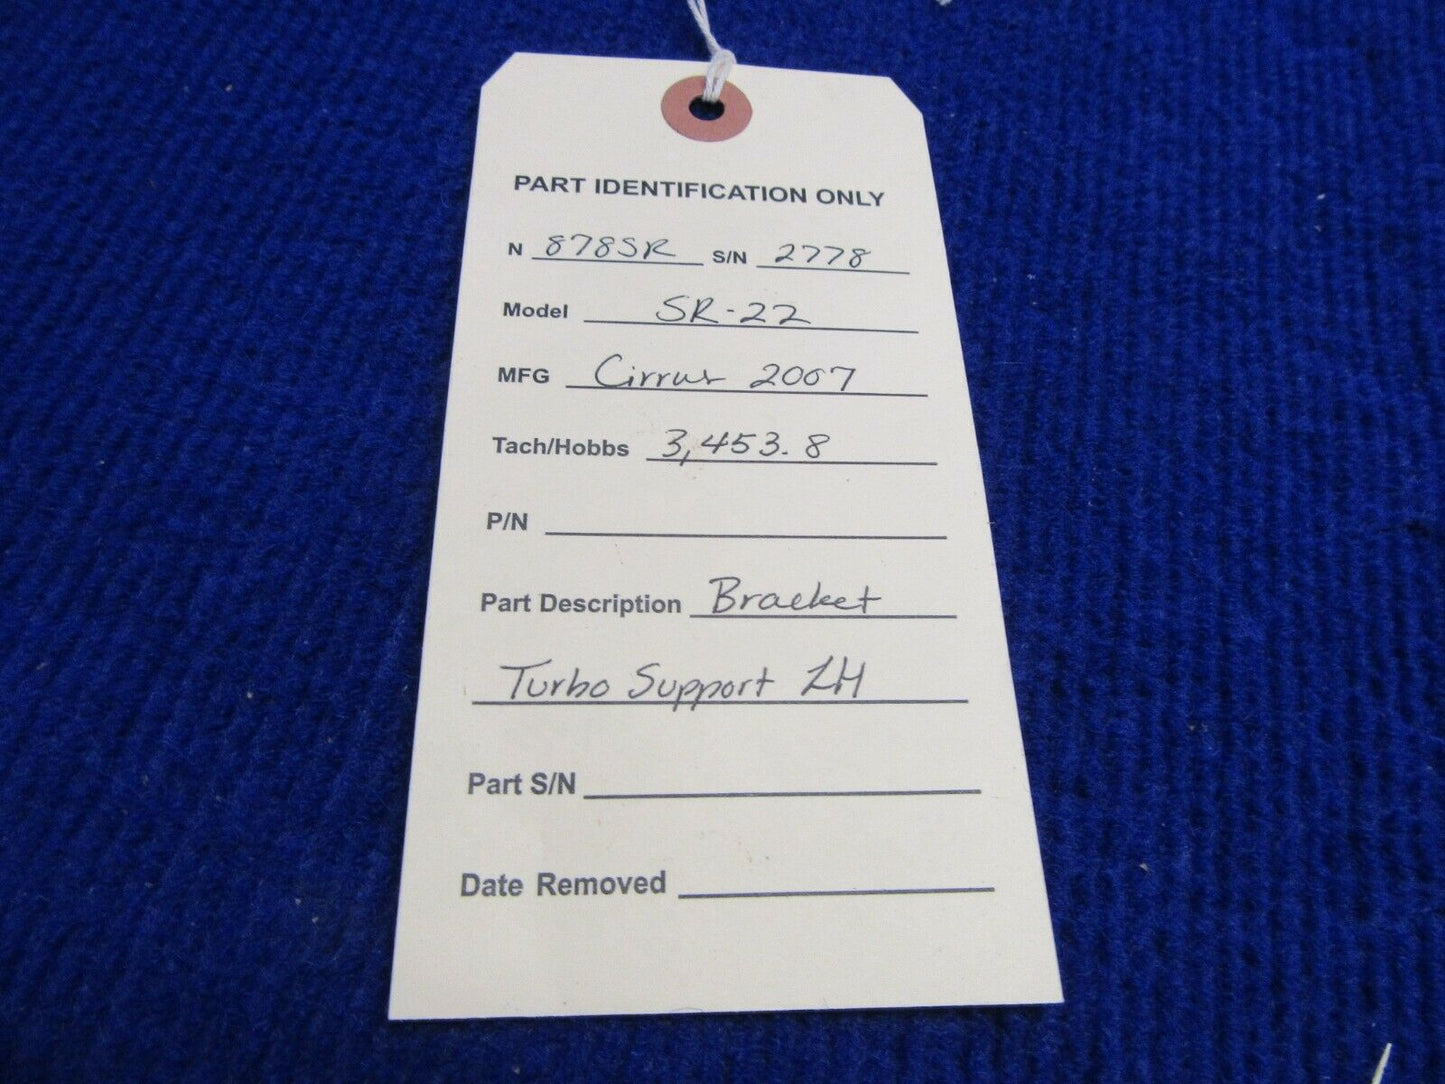 PART IDENTIFICATION ONLY
N 878SR S/N 2778
Model SR-22
MFG Cirrus 2007
Tach/Hobbs 3,453.8
P/N
Part Description Bracket
Turbo Support LH
Part S/N
Date Removed